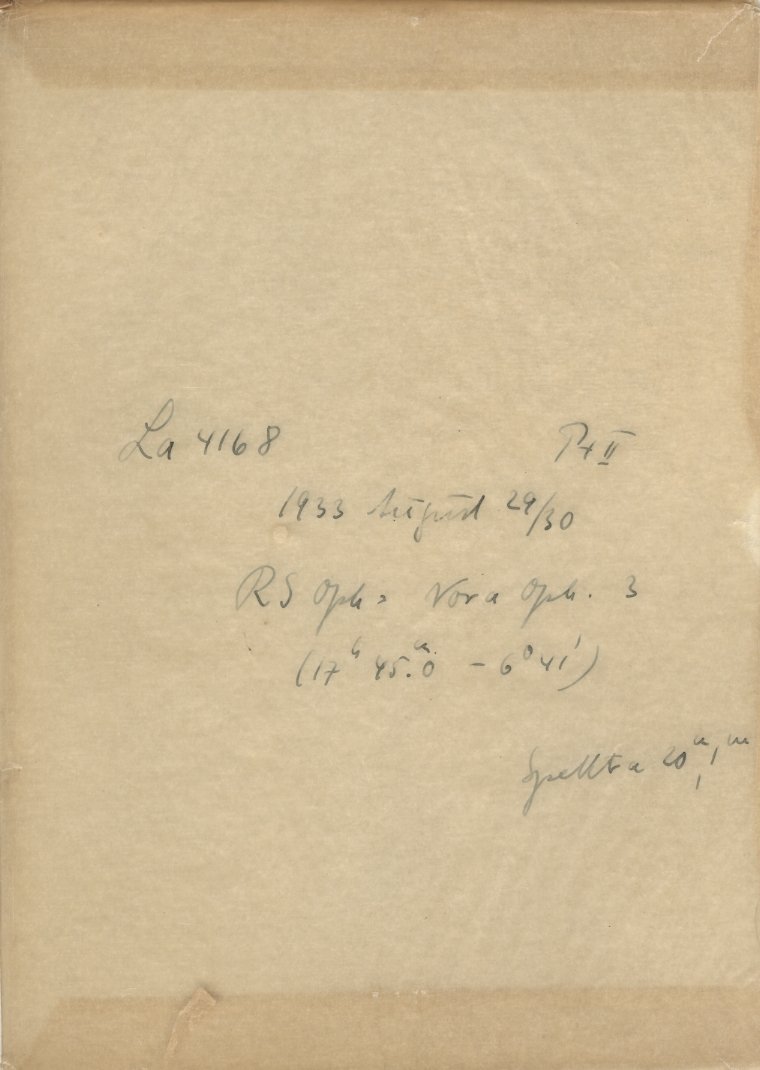 La 4168 Pr II
1933 August 29/30
RS Oph = Nova Oph. 3
(17ʰ 45ᵐ.0 – 6° 41′)
Spektra 20ᵐ, 1ᵐ